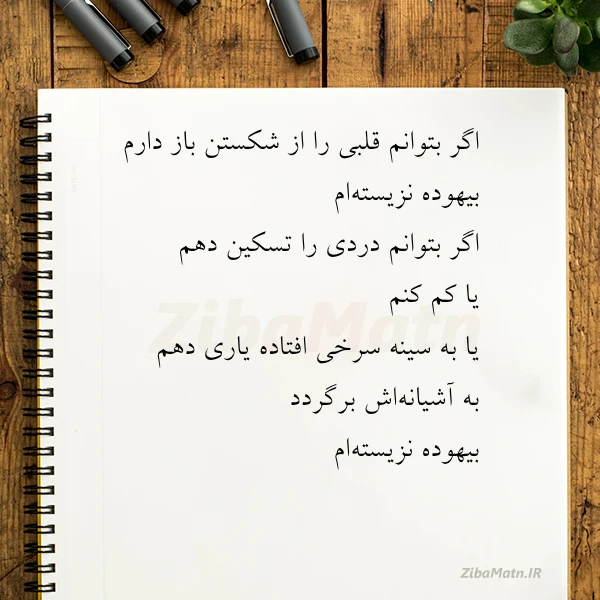 اگر بتوانم قلبی را از شکستن باز دارم
بیهوده نزیسته‌ام
اگر بتوانم دردی را تسکین دهم
یا کم کنم
یا به سینه سرخی افتاده یاری دهم
به آشیانه‌اش برگردد
بیهوده نزیسته‌ام
ZibaMatn
ZibaMatn.IR